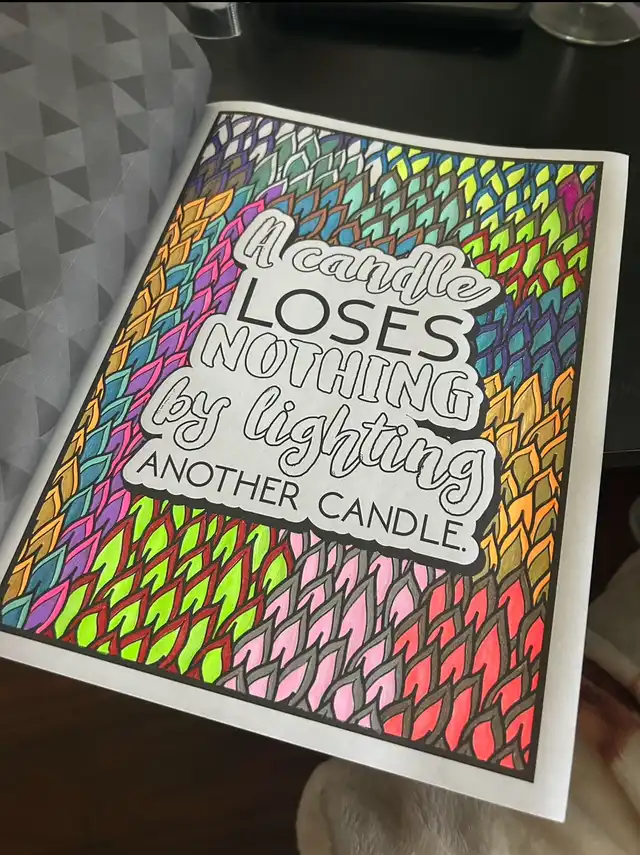 A candle
LOSES
NOTHING
by lighting
ANOTHER CANDLE.